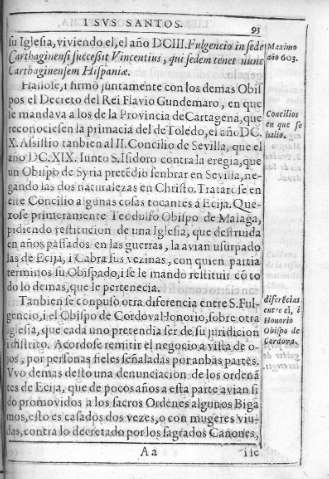 I SVS SANTOS.
93
su Iglesia, viviendo el, el año DCIII. Fulgencio in sede
Carthaginensi successit Vincentius, qui sedem tenet nunc
Carthaginensem Hispaniæ.
Maximo
año 603.
Hallose, i firmó juntamente con los demas Obis
pos el Decreto del Rei Flavio Gundemaro, en que
le mandava a los de la Provincia de Cartagena, que
reconociesen la primacia del de Toledo, el año DC.
X. Assistio tanbien al II. Concilio de Sevilla, que el
año DC.XIX. Iunto S. Isidoro contra la eregia, que
un Obispo de Syria pretēdio senbrar en Sevilla, ne-
gando las dos naturalezas en Christo. Trataronse en
este Concilio algunas cosas tocantes a Ecija. Que-
xose primeramente Teodulfo Obispo de Malaga,
pidiendo restitucion de una Iglesia, que destruida
en años passados en las guerras, la avian usurpado
las de Ecija, i Cabra sus vezinas, con quien partia
terminos su Obispado, i se le mando restituir cō to
do lo demas, que le pertenecia.
Concilios
en que se
hallo.
Tanbien se conpuso otra diferencia entre S. Ful-
gencio, i el Obispo de Cordova Honorio, sobre otra
Iglesia, que cada uno pretendia ser de su juridicion
i distrito. Acordose remitir el negocio a vista de o-
jos, por personas fieles señaladas por anbas partes.
Vvo demas desto una denunciacion de los ordená
tes de Ecija, que de pocos años a esta parte avian si
do promovidos a los sacros Ordenes algunos Biga
mos, esto es casados dos vezes, o con mugeres viu-
das, contra lo decretado por los sagrados Canones,
diferēcias
entre el, i
Honorio
Obispo de
Cordova.
Aa